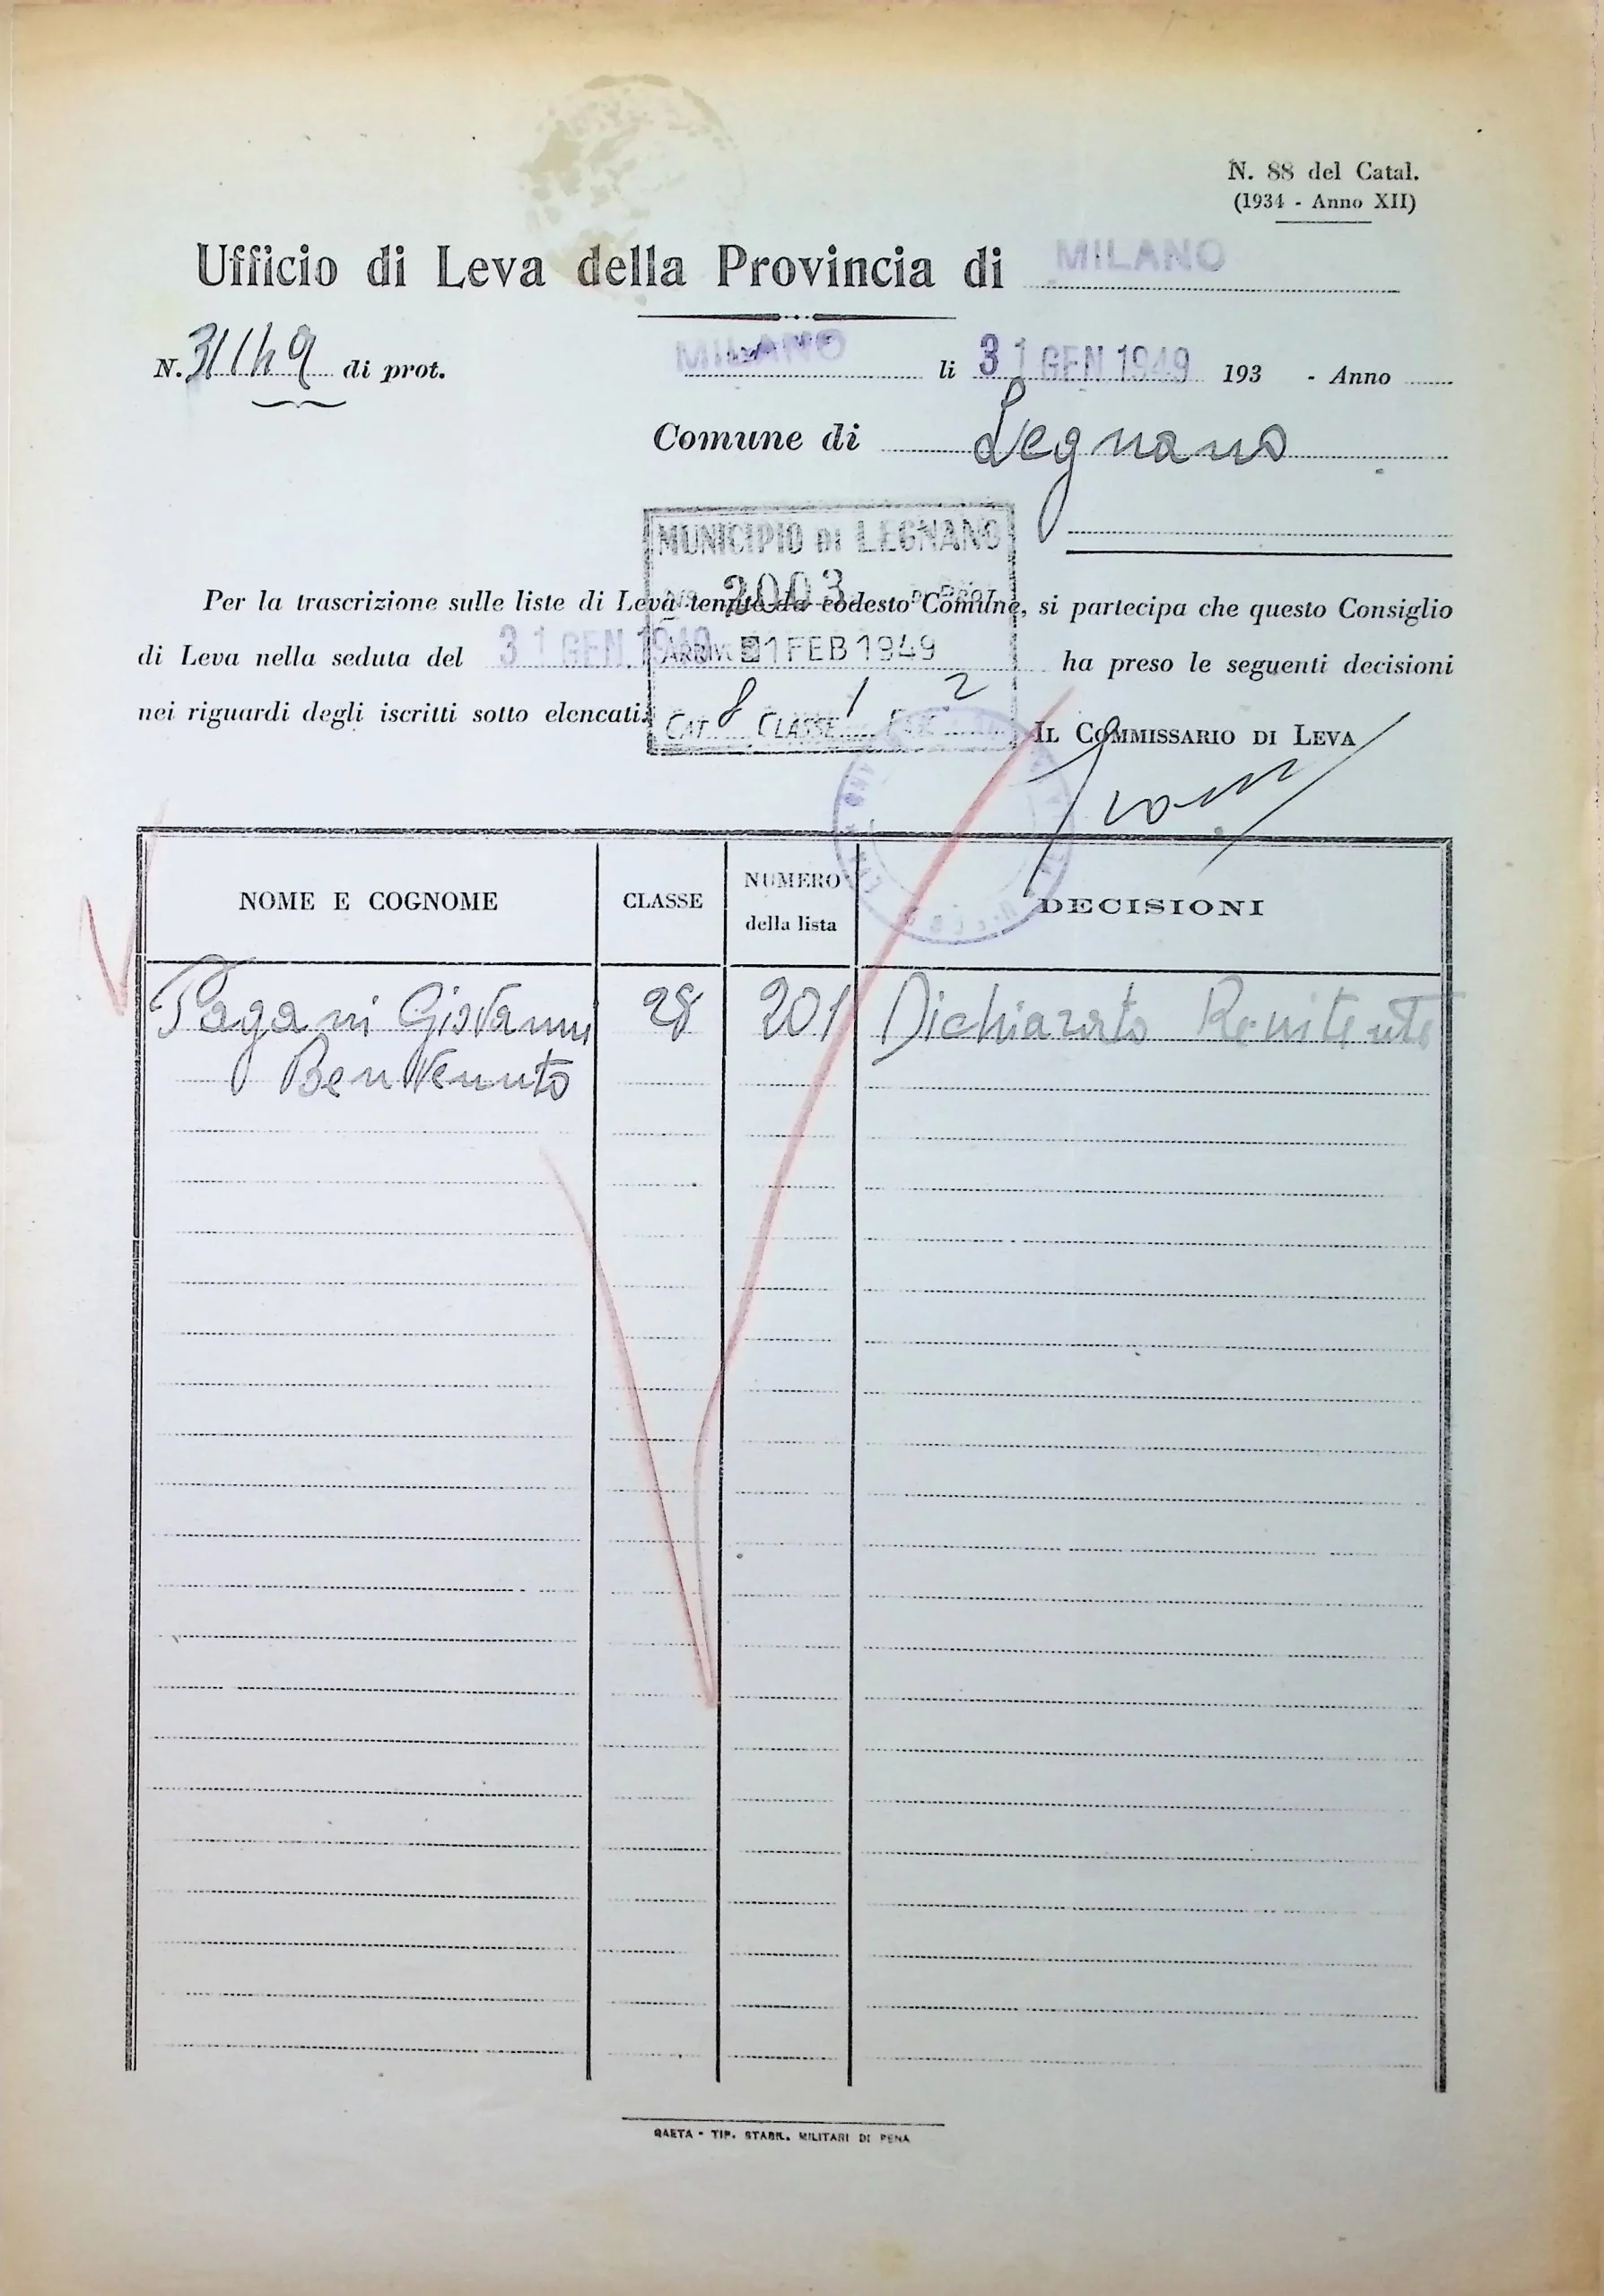 N. 88 del Catal.
(1934 - Anno XII)
Ufficio di Leva della Provincia di MILANO
N. 31/49 di prot.
MILANO li 31 GEN 1949 193 - Anno
Comune di Legnano
MUNICIPIO DI LEGNANO
2003
Per la trascrizione sulle liste di Leva tenute da codesto Comune, si partecipa che questo Consiglio
di Leva nella seduta del 31 GEN 1949 ha preso le seguenti decisioni
ARRIV. 1 FEB 1949
nei riguardi degli iscritti sotto elencati.
CAT. 8 CLASSE 1 2
IL COMMISSARIO DI LEVA
NOME E COGNOME CLASSE NUMERO della lista DECISIONI
Pagani Giovanni 28 201 Dichiarato Renitente
Benvenuto
GAETA - TIP. STABIL. MILITARI DI PENA